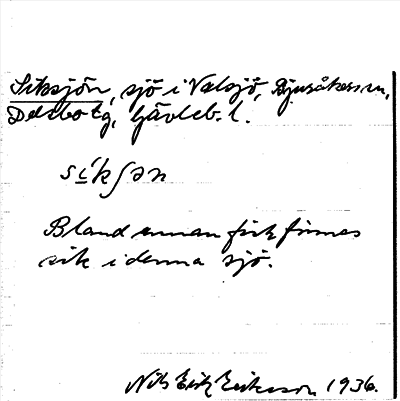 Siksjön, sjö i Valsjö, Bjuråkers sn,
Delsbo tg, Gävleb. l.
síkʃən
Bland annan fisk finnes
sik i denna sjö.
Nils Erik Eriksson 1936.